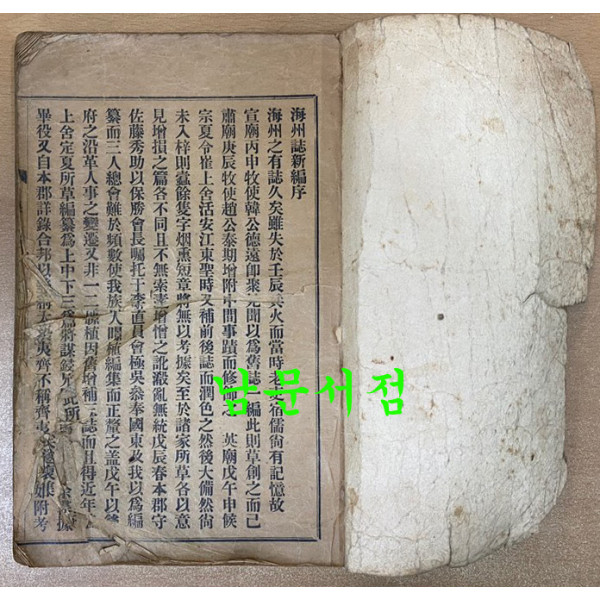 海州誌新編序
海州之有誌久矣雖失於壬辰兵火而當時老宿儒尙有記憶故
宣廟丙申牧使韓公德遠卽聚見聞以爲舊誌一編此則草創之而已
肅廟庚辰牧使趙公泰期增附中間事蹟而修 英廟戊午申候
宗夏令崔上舍活安江東聖時又補前後誌而潤色之然後大備然尙
未入梓則蠧餘隻字烟熏短章將無以考據矣至於諸家所草各以意
見增損之篇各不同且不無索 增憎之訛殽亂無統戊辰春本郡守
佐藤秀助以保勝會長囑托于李直員會極吳叅奉國東 我以爲編
纂而三人總會難於頻數使我族人 種編集而正釐之盖戊午以後
府之沿革人事之變遷又非一二 植因舊增補 誌而且得近年
上舍定夏所草編纂爲上中下三 爲將謀鋟 此所 據
畢役又自本郡詳錄合邦以 夷齊不稱齊 集 附考
남문서점